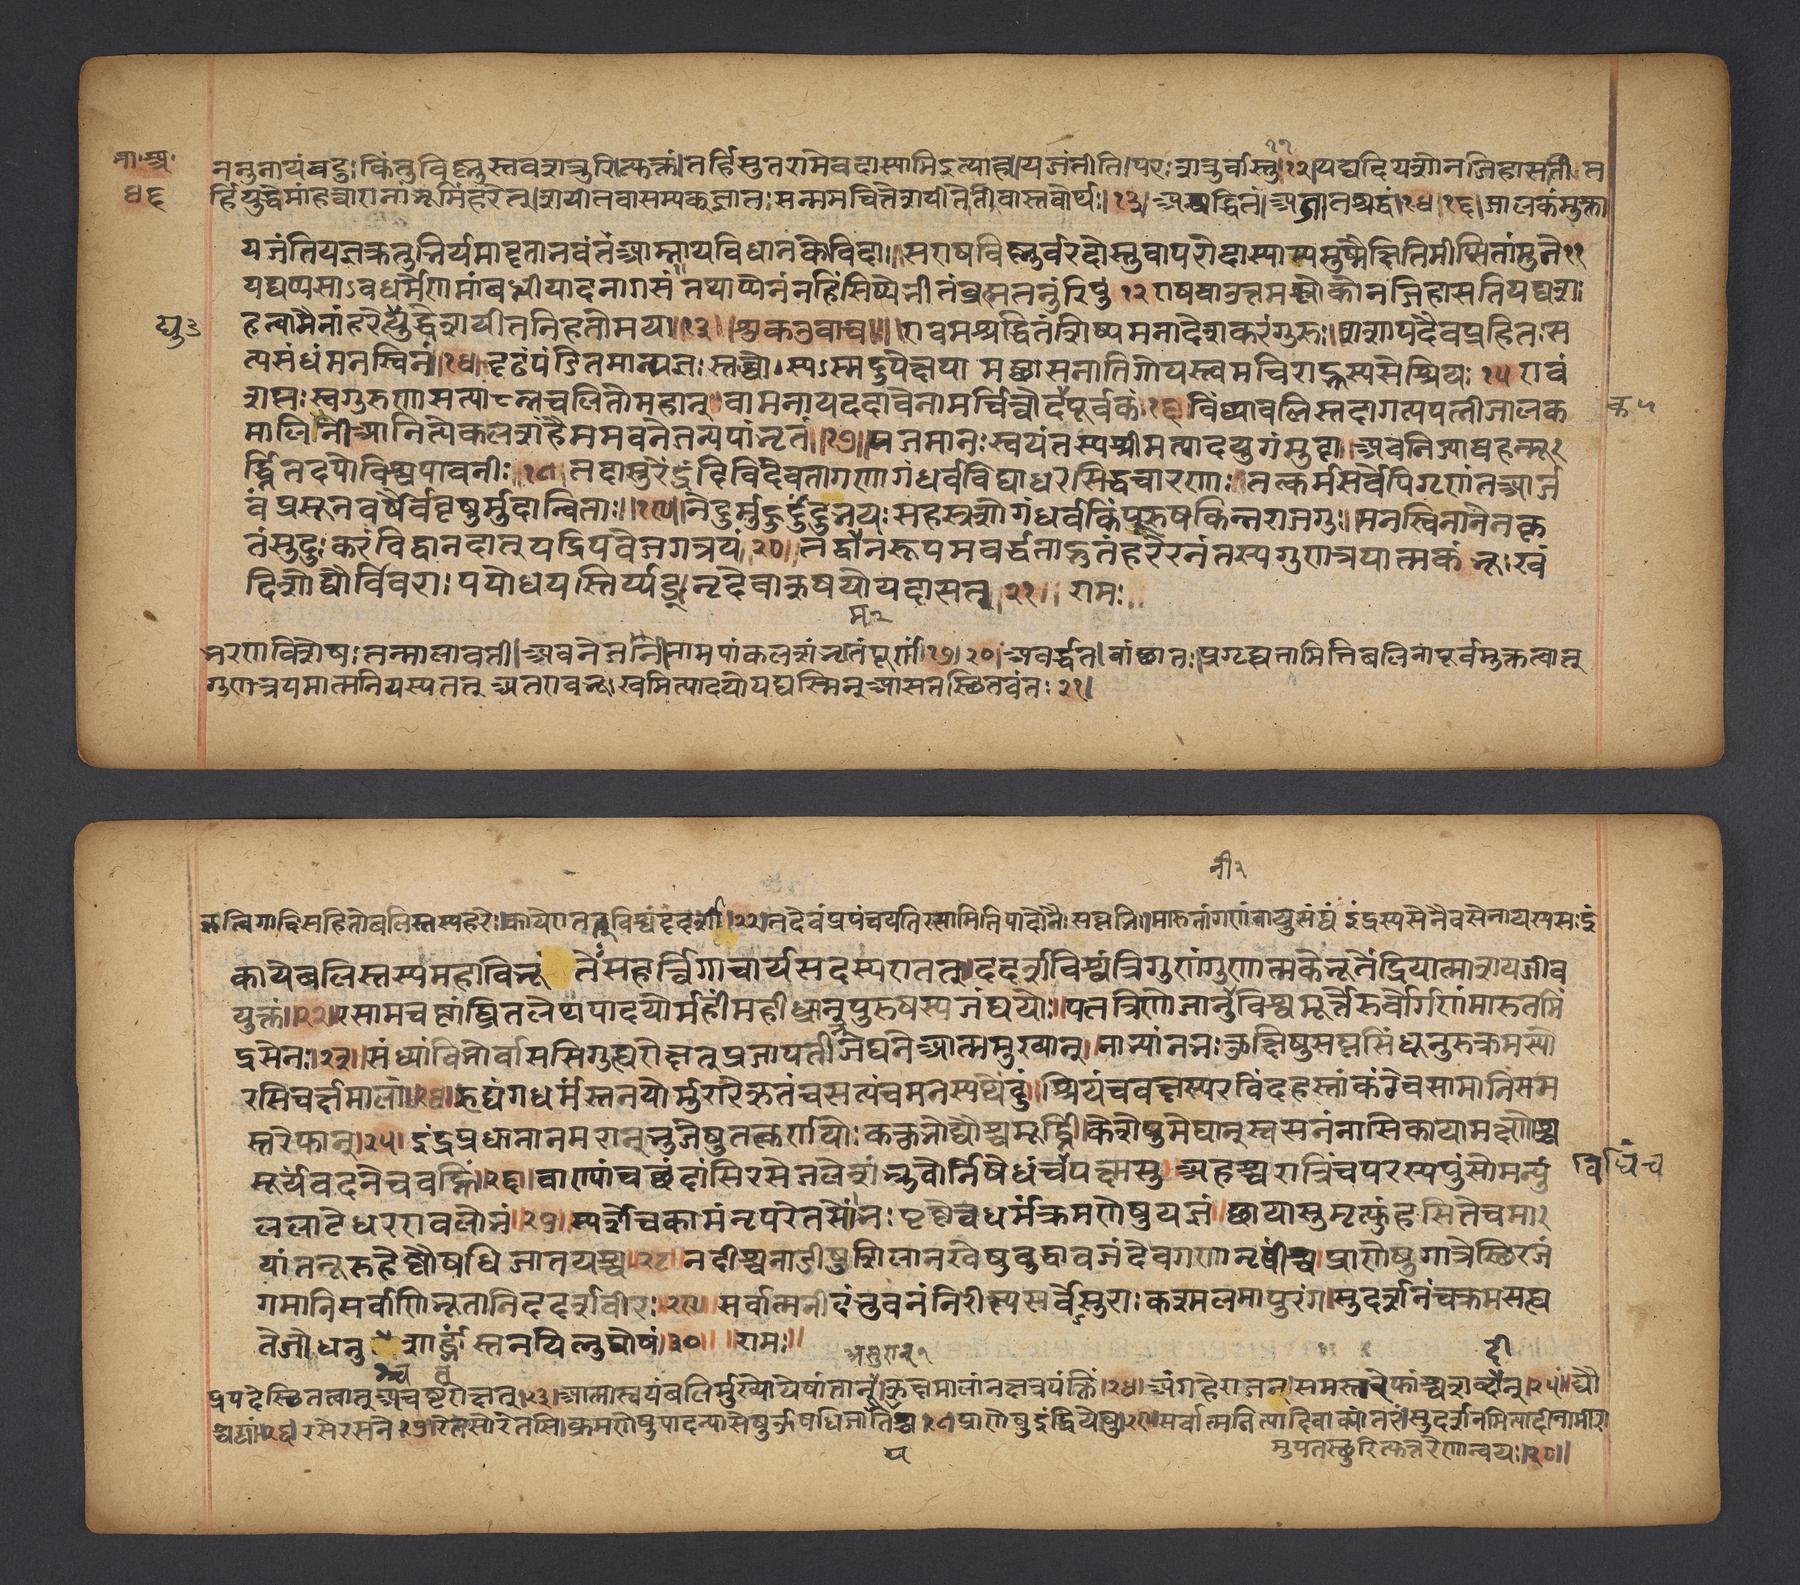 भा॰अ॰
४६
ननुनायंबटुः किंतुविष्णुस्तवशत्रुरित्युक्तं तर्हिसुतरामेवदास्यामिइत्याह यजंतीति परः शत्रुर्वास्तु १२ यद्यदियशोनजिहासती त
र्हियुद्धेमांहत्वाएनांभूमिंहरेत् शयीतवासम्यक्ज्ञातः सन्ममचित्तेशयीतेतीवास्तवोर्थः १३ अश्रद्धितं अजातश्रद्धं १४ १६ जालकंमुक्ता
यजंतियज्ञक्रतुभिर्यमादृताभवंतआम्नायविधानकोविदाः सएषविष्णुर्वरदोस्तुवापरोदास्याम्यमुष्मैक्षितिमीप्सितांमुने ११
यद्यप्यसाऽवधर्मेणमांबध्नीयादनागसं तथाप्येनंनहिंसिष्येभीतंब्रह्मतनुंरिपुं १२ एषवाउत्तमश्लोकोनजिहासतियद्यशः
द्यु३
हत्वामैनांहरेद्युद्धेशयीतनिहतोमया १३ श्रीशुकउवाच एवमश्रद्धितंशिष्यमनादेशकरंगुरुः शशापदैवप्रहितः स
त्यसंधंमनस्विनं १४ दृढंपंडितमान्यज्ञः स्तब्धोस्यऽस्मदुपेक्षया मच्छासनातिगोयस्त्वमचिराद्भ्रस्यसेश्रियः १५ एवं
शप्तः स्वगुरुणासत्यान्नचलितोमहान् वामनायददावेनामर्चित्वोदपूर्वकं १६ विंध्यावलिस्तदागत्यपत्नीजालक
क५
मालिनी आनिन्येकलशंहैममवनेजन्यपांभृतं १७ यजमानः स्वयंतस्यश्रीमत्पादयुगंमुदा अवनिज्यावहन्मू
र्द्ध्नितदपोविश्वपावनीः १८ तदासुरेंद्रंदिविदेवतागणागंधर्वविद्याधरसिद्धचारणाः तत्कर्मसर्वेपिगृणंतआर्ज
वंप्रसूनवर्षैर्ववृषुर्मुदान्विताः १९ नेदुर्मुहुर्दुंदुभयः सहस्रशोगंधर्वकिंपूरुषकिन्नराजगुः मनस्विनानेनकृ
तंसुदुःकरंविद्वानदात् यद्रिपवेजगत्रयं २० तद्वामनंरूपमवर्द्धताद्भुतंहरेरनंतस्यगुणत्रयात्मकं भूः खं
दिशोद्यौर्विवराः पयोधयस्तिर्यङ्नृदेवाऋषयोयदासत २१ रामः
म२
भरणविशेषः तन्मालावती अवनेजनीनामपांकलशंभृतंपूर्णं १७ २० अवर्द्धत वांछातः प्रगृह्यनामितिबलिनापूर्वमुक्तत्वात्
गुणत्रयमात्मनियस्यतत् अतएवभूः खमित्यादयोयद्यस्मिन्आसतस्थितवंतः २१
नी२
ऋत्विगादिसहितोबलिस्तस्यहरेः कायेएतत्विश्वंददर्श २२ तदेवंप्रपंचयतिरसामितिपादोनैः सप्तभिः मारुतांगणंवायुसंघं इंद्रस्यसेनैवसेनायस्यसः इं
कायेबलिस्तस्यमहाविभूतेः सहर्त्विगाचार्यसदस्यएतत् ददर्शविश्वंत्रिगुणंगुणात्मकेभूतेंद्रियात्माशयजीव
युक्तं २२ रसामचष्टांघ्रितलेथपादयोर्महींमहीध्रान्पुरुषस्यजंघयोः पतत्रिणोजानुविश्वमूर्तेरूर्वोर्गणंमारुतमिं
द्रसेनः २३ संध्यांविभोर्वाससिगुह्यऐक्षत्प्रजापतीन्जघनेआत्ममुख्यान् नाभ्यांनभः कुक्षिषुसप्तसिंधूनुरुक्रमस्यो
रसिचर्क्षमालां २४ हृद्यंगधर्मंस्तनयोर्मुरारेर्ऋतंचसत्यंचमनस्यथेंदुं श्रियंचवक्षस्यरविंदहस्तांकंठेचसामानिसम
स्तरेफान् २५ इंद्रप्रधानानमरान्भुजेषुतत्कर्णयोः ककुभोद्यौश्चमूर्द्ध्नि केशेषुमेघान्श्वसनंनासिकायामक्ष्णोश्च
सूर्यंवदनेचवह्निं २६ वाण्यांचछंदांसिरसेजलेशंभ्रुवोर्निषेधंचपक्ष्मसु अहश्चरात्रिंचपरस्यपुंसोमन्युं
विधिंच
ललाटेधरएवलोभं २७ स्पर्शेचकामंनृपरेतसांभः पृष्ठेत्वधर्मंक्रमणेषुयज्ञं छायासुमृत्युंहसितेचमा
यांतनूरुहेष्वौषधिजातयश्च २८ नदीश्चनाडीषुशिलानखेषुबुद्धावजंदेवगणानृषींश्च प्राणेषुगात्रेस्थिरजं
गमानिसर्वाणिभूतानिददर्शवीरः २९ सर्वात्मनीदंभुवनंनिरीक्ष्यसर्वेसुराः कश्मलमापुरंग सुदर्शनंचक्रमसह्य
तेजोधनु शार्ङ्गंस्तनयित्नुघोषं ३० रामः
असुराः१
दी
प्रपदेस्थितत्वात् अचष्टऐक्षत् २३ आत्मास्वयंबलिर्मुख्योयेषांतान् ऋक्षमालांनक्षत्रपंक्तिं २४ अंगहेराजन् समस्तरेफांश्चशब्दान् २५ द्यौ
श्च २६ रसेरसने २७ रेतसोरेतसि क्रमणेषुपादन्यासेषु औषधिजातिश्च २८ प्राणेषुइंद्रियेषु २९ सर्वात्मनित्यादिवाक्यांतरं सुदर्शनमित्यादीनामीश
य
मुपतस्थुरित्युत्तरेणान्वयः ३०